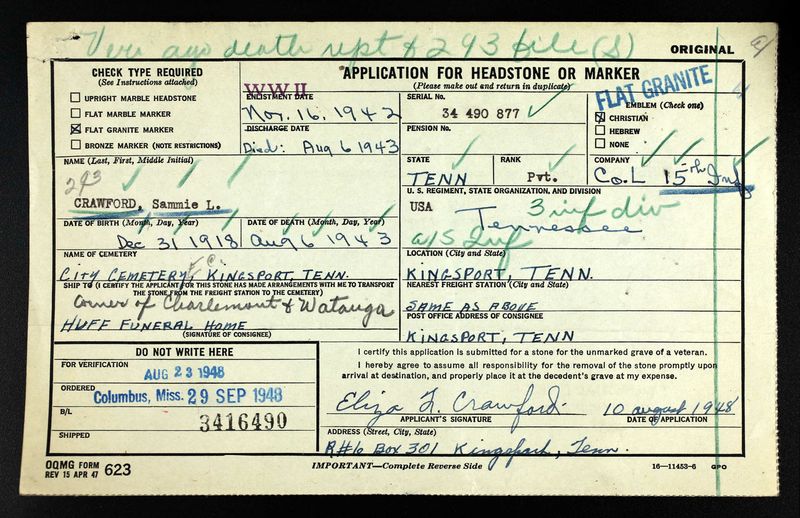 Veri ago death rept & 293 file (s)
ORIGINAL
CHECK TYPE REQUIRED
(See Instructions attached)
UPRIGHT MARBLE HEADSTONE
FLAT MARBLE MARKER
FLAT GRANITE MARKER
BRONZE MARKER (NOTE RESTRICTIONS)
APPLICATION FOR HEADSTONE OR MARKER
(Please make out and return in duplicate)
WW II
ENLISTMENT DATE
Nov. 16, 1942
DISCHARGE DATE
Died: Aug 6 1943
SERIAL No.
34 490 877
PENSION No.
FLAT GRANITE
EMBLEM (Check one)
CHRISTIAN
HEBREW
NONE
NAME (Last, First, Middle Initial)
293
CRAWFORD, Sammie L.
STATE
TENN
RANK
Pvt.
COMPANY
Co. L 15th Inf
U. S. REGIMENT, STATE ORGANIZATION, AND DIVISION
USA
3 inf div
Tennessee
a/s Inf
DATE OF BIRTH (Month, Day, Year)
Dec 31 1918
DATE OF DEATH (Month, Day, Year)
Aug 6 1943
NAME OF CEMETERY
CITY CEMETERY, KINGSPORT, TENN.
LOCATION (City and State)
KINGSPORT, TENN.
SHIP TO (I CERTIFY THE APPLICANT FOR THIS STONE HAS MADE ARRANGEMENTS WITH ME TO TRANSPORT
THE STONE FROM THE FREIGHT STATION TO THE CEMETERY)
corner of Charlemont & Watauga
HUFF FUNERAL HOME
(SIGNATURE OF CONSIGNEE)
NEAREST FREIGHT STATION (City and State)
SAME AS ABOVE
POST OFFICE ADDRESS OF CONSIGNEE
KINGSPORT, TENN
DO NOT WRITE HERE
FOR VERIFICATION
AUG 23 1948
ORDERED
Columbus, Miss. 29 SEP 1948
B/L
3416490
SHIPPED
I certify this application is submitted for a stone for the unmarked grave of a veteran.
I hereby agree to assume all responsibility for the removal of the stone promptly upon
arrival at destination, and properly place it at the decedent's grave at my expense.
Eliza L. Crawford
10 august 1948
APPLICANT'S SIGNATURE
DATE OF APPLICATION
ADDRESS (Street, City, State)
R#6 Box 301 Kingsport, Tenn.
OQMG FORM
REV 15 APR 47
623
IMPORTANT—Complete Reverse Side
16—11453-6 GPO